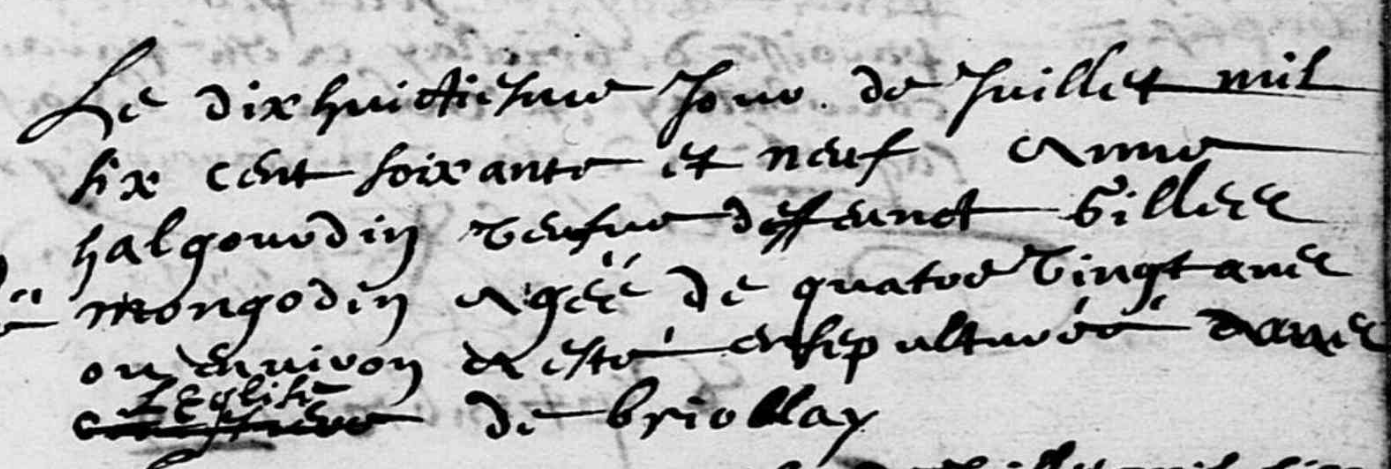 Le dixhuictiesme Jour de Juillet mil
six cent soixante et neuf Anne
halgourdin veufve deffeunct Gilles
mongodin Agéé de quatre vingt ans
ou environ A esté ensepulturéé dans
L'Eglise
cimetiere de briollay